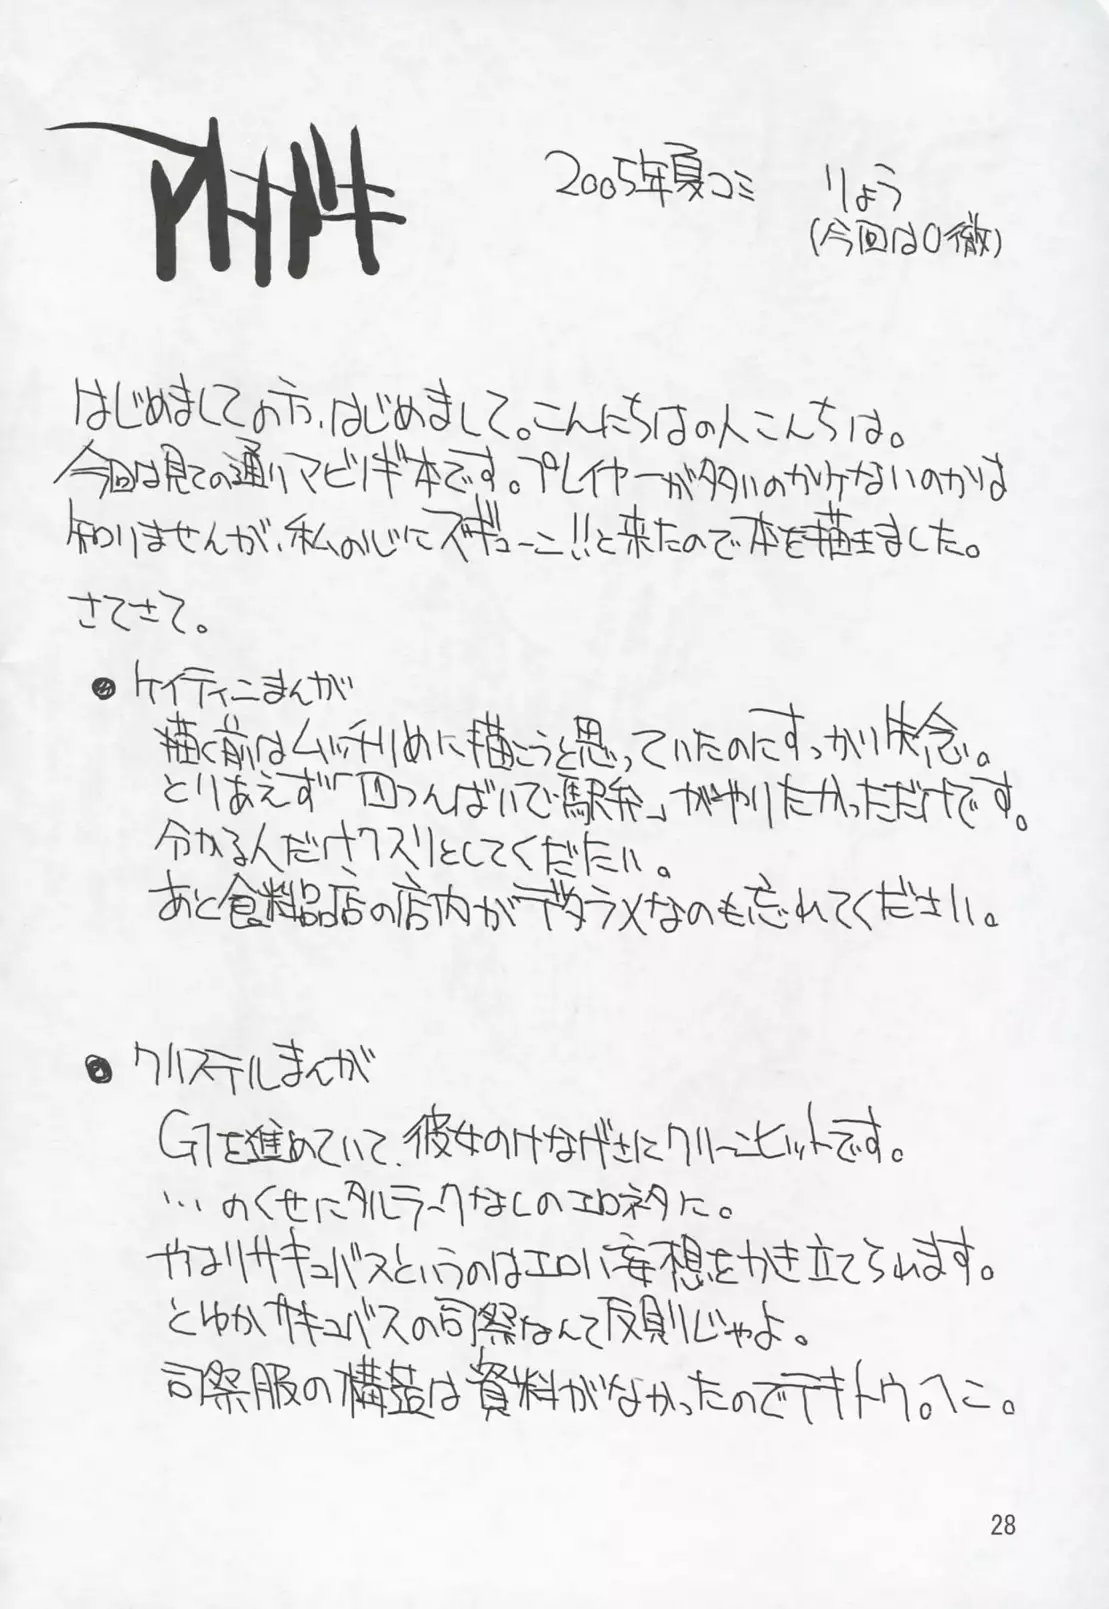 アトガキ
2005年夏コミ りょう
(今回は0徹)
はじめましての方、はじめまして。こんにちはの人こんちは。
今回は見ての通りマビノギ本です。プレイヤーが多いのか少ないのかは
知りませんが、私の心にズギューーン!!と来たので本を描きました。
さてさて。
●ケイティンまんが
描く前はムッチリめに描こうと思っていたのにすっかり失念。
とりあえず「四つんばいで駅弁」がやりたかっただけです。
分かる人だけクスリとしてくだたい。
あと食料品店の店内がデタラメなのも忘れてください。
●クリステルまんが
G1を進めていて、彼女のけなげさにクリーンヒットです。
…のくせにタルラークなしのエロネタに。
やはりサキュバスというのはエロい妄想をかき立てられます。
とゆかサキュバスの司祭なんて反則じゃよ。
司祭服の構造は資料がなかったのでテキトウ。へこ。
28